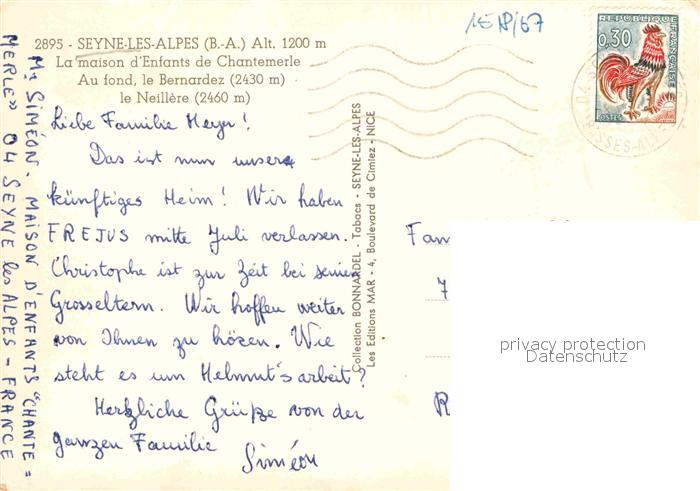 2895 - SEYNE-LES-ALPES (B.-A.) Alt. 1200 m
La maison d'Enfants de Chantemerle
Au fond, le Bernardez (2430 m)
le Neillère (2460 m)
Liebe Familie Meyer!
Das ist nun unsere
künftiges Heim! Wir haben
FREJUS mitte Juli verlassen.
Christophe ist zur Zeit bei seinen
Grosseltern. Wir hoffen weiter
von Ihnen zu hözen. Wie
steht es um Helmut's arbeit?
Herzliche Grüße von der
ganzen Familie
Siméon
Mr SIMÉON. MAISON D'ENFANTS "CHANTE=
MERLE" 04 SEYNE les ALPES - FRANCE
Collection BONNARDEL - Tabacs - SEYNE-LES-ALPES
Les Editions MAR - 4, Boulevard de Cimiez - NICE
REPUBLIQUE FRANÇAISE
0,30
POSTES
Fam
7
R
privacy protection
Datenschutz